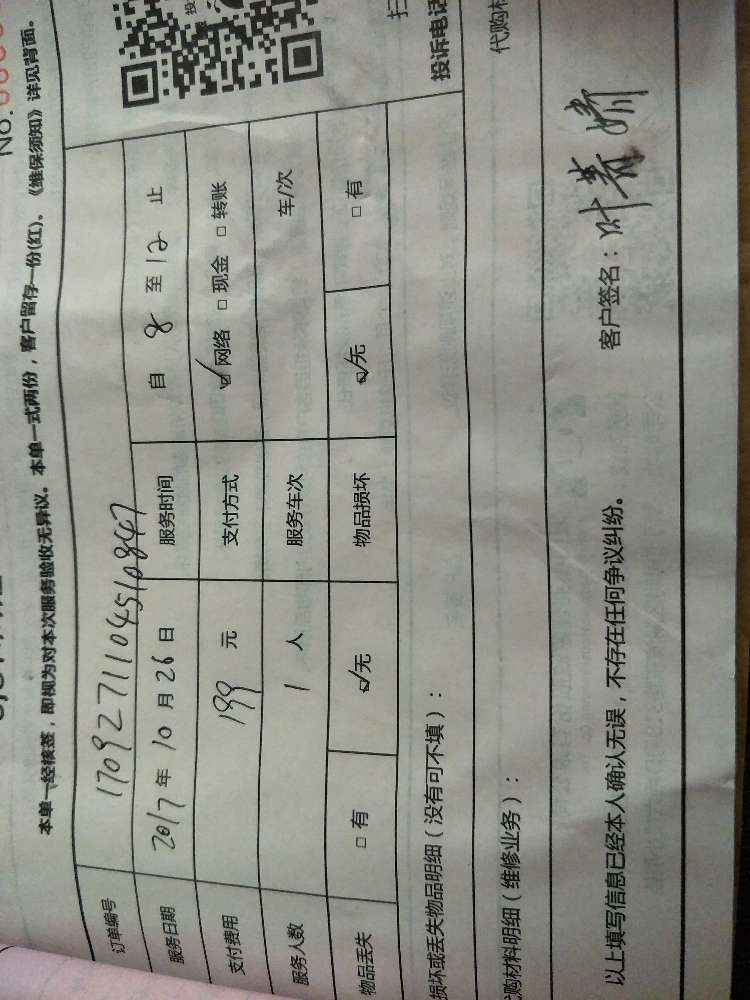 No.
本单一经核签，即视为对本次服务验收无异议。本单一式两份，客户留存一份(红)、《维保须知》详见背面。
订单编号 1709271104510847
服务日期 2017年10月26日 服务时间 自 8 至 12 止
支付费用 199 元 支付方式 ☑网络 □现金 □转账
服务人数 1 人 服务车次 车/次
物品丢失 □有 ☑无 物品损坏 ☑无 □有
损坏或丢失物品明细（没有可不填）：
投诉电话
购材料明细（维修业务）：
代购
以上填写信息已经本人确认无误，不存在任何争议纠纷。 客户签名：叶青